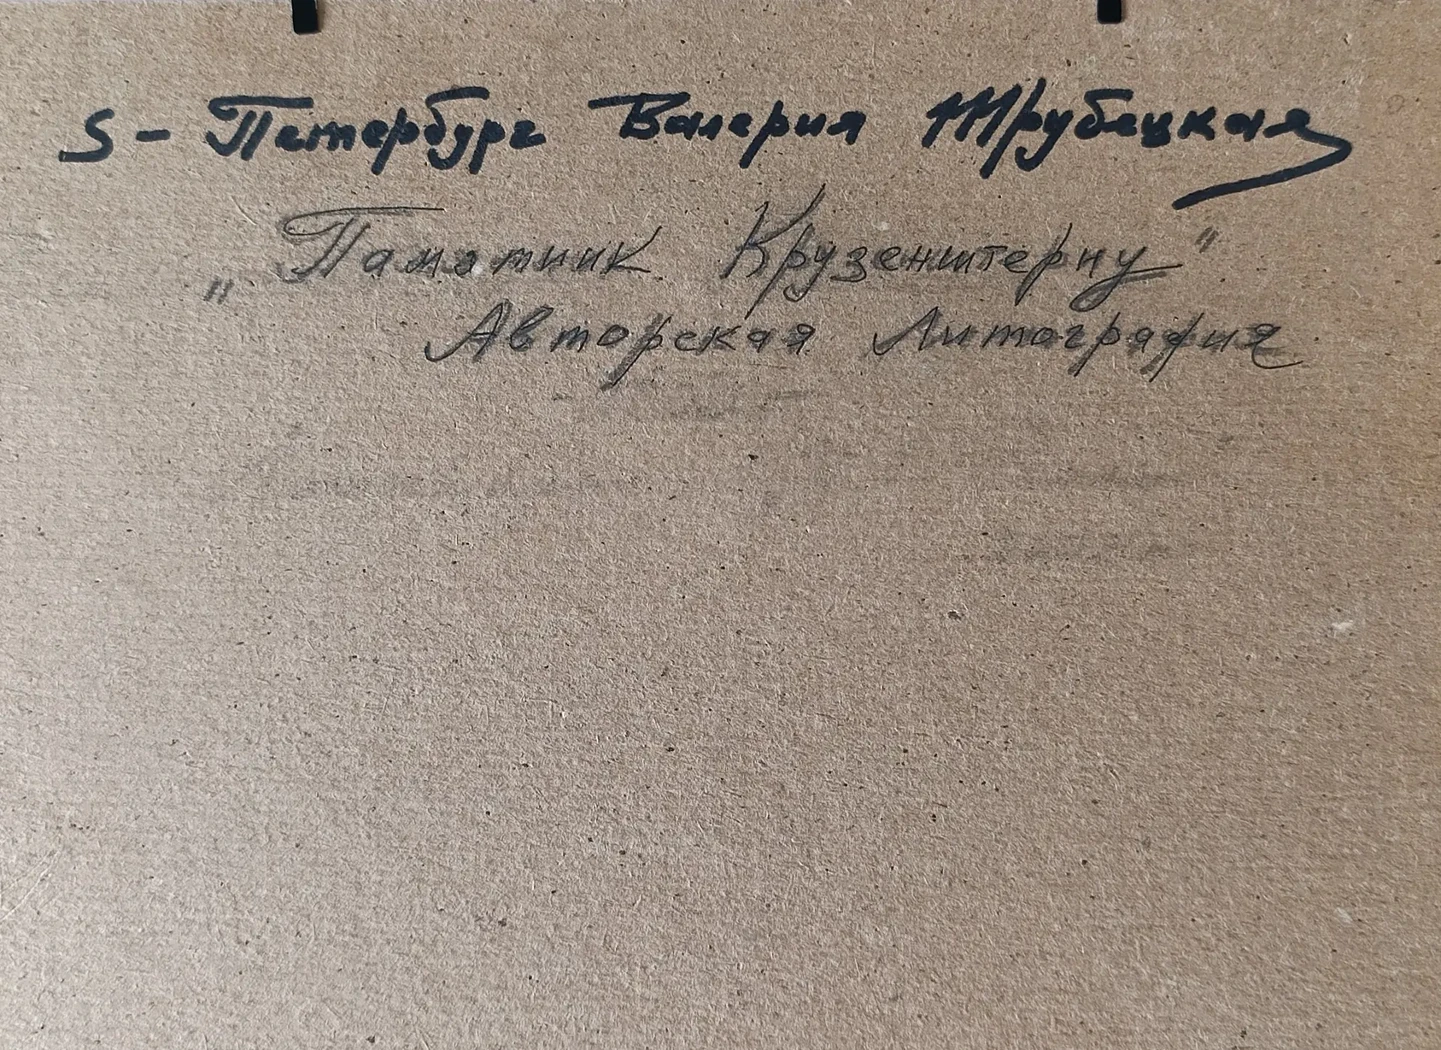 S - Петербург Валерия Трубецкая
„Памятник Крузенштерну"
Авторская Литография